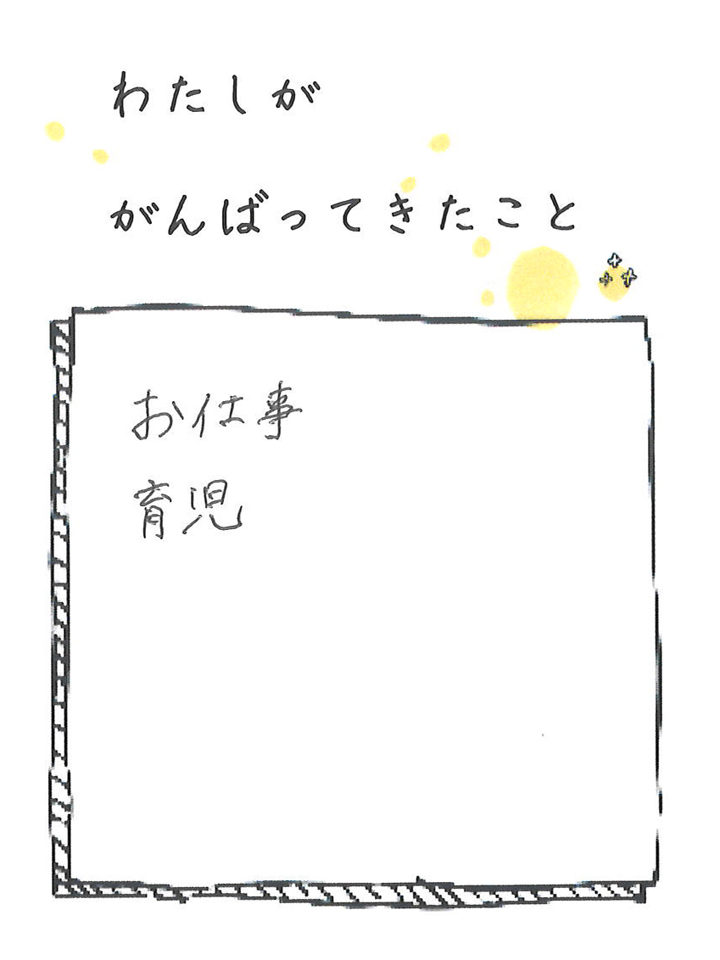 わたしが
がんばってきたこと
お仕事
育児